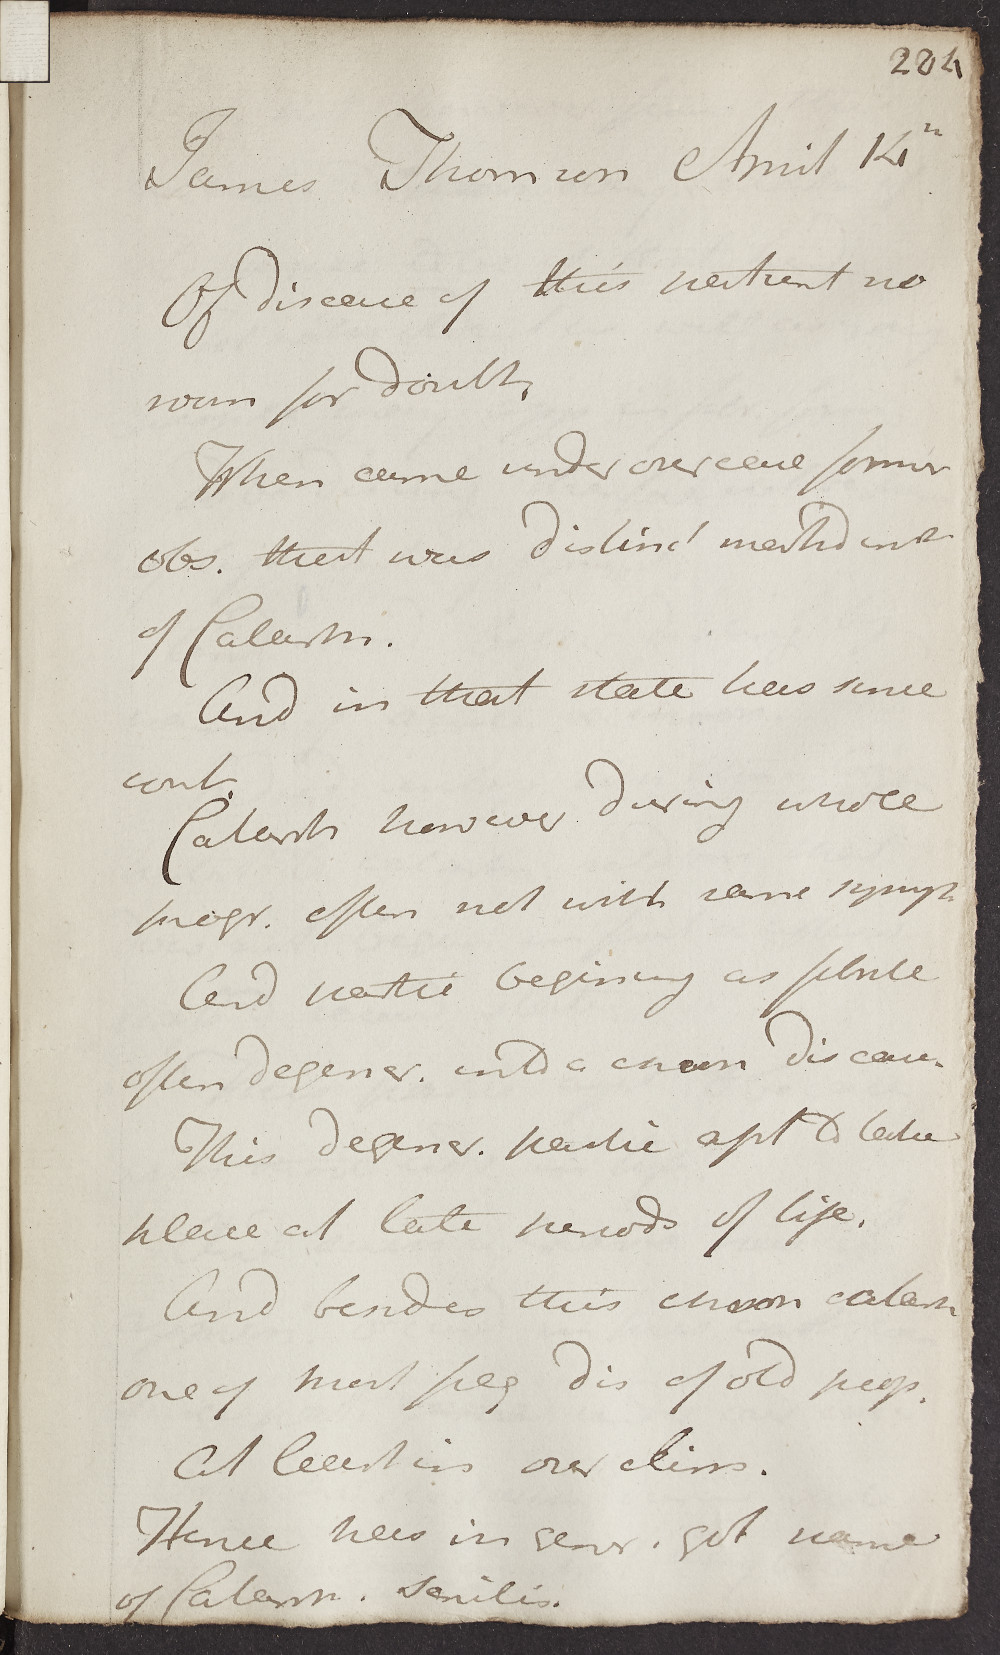 224
James Thomson April 14th
Of disease of this patient no
room for doubt,
When came under over care former
obs. that was distinct
of Catarrh.
And in that state has since
cont.
Catarrh however during whole
progr. often not with same sympt.
And partic beginning as febrile
often degener. into a chron disease.
This degener. partic apt to take
place at late periods of life.
And besides this chron catarrh
one of most freq dis of old peop.
At least in over clim.
Hence has in gener. got name
of Catarrh. senilis.